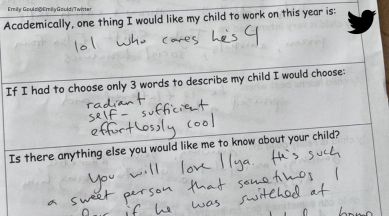 Emily Gould@EmilyGould/Twitter
Academically, one thing I would like my child to work on this year is:
lol who cares he's 4
If I had to choose only 3 words to describe my child I would choose:
radiant
self-sufficient
effortlessly cool
Is there anything else you would like me to know about your child?
You will love Ilya. He's such
a sweet person that sometimes I
if he was switched at